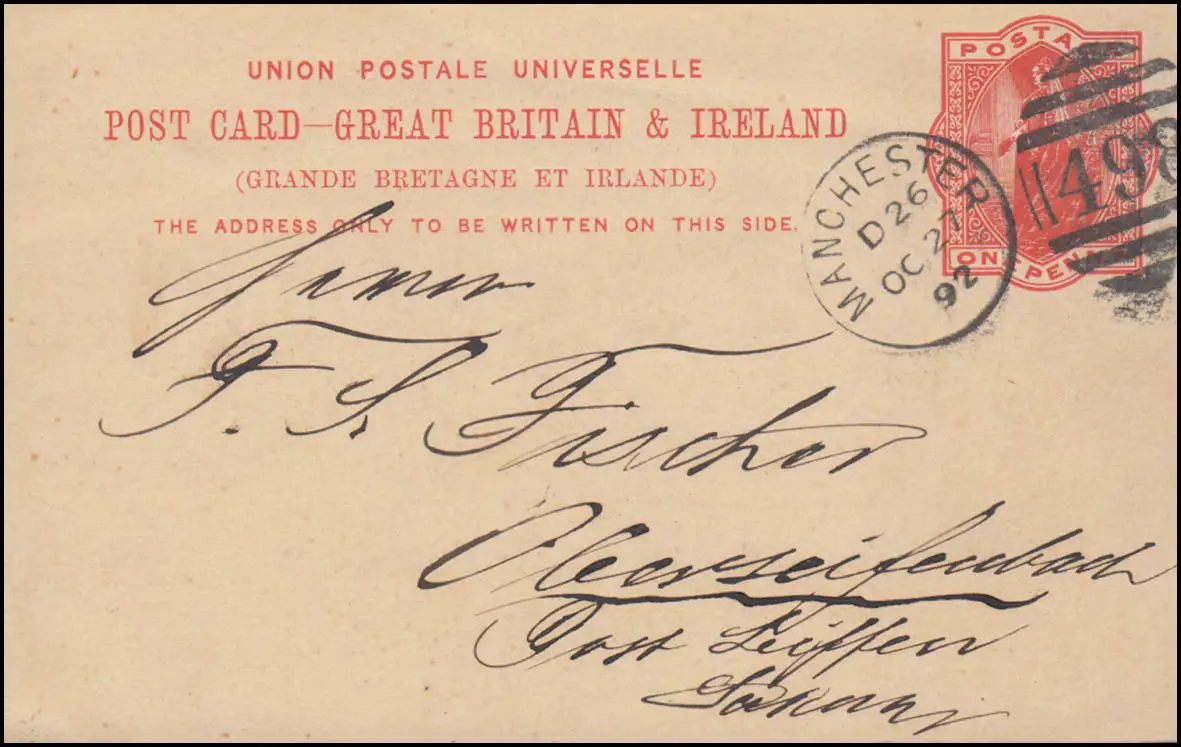 UNION POSTALE UNIVERSELLE
POST CARD—GREAT BRITAIN & IRELAND
(GRANDE BRETAGNE ET IRLANDE)
THE ADDRESS ONLY TO BE WRITTEN ON THIS SIDE.
POSTA
ONE PENNY
MANCHESTER
D 26
OC 27
92
498
F. S. Fischer
Oberseifenbach
Post Seiffen